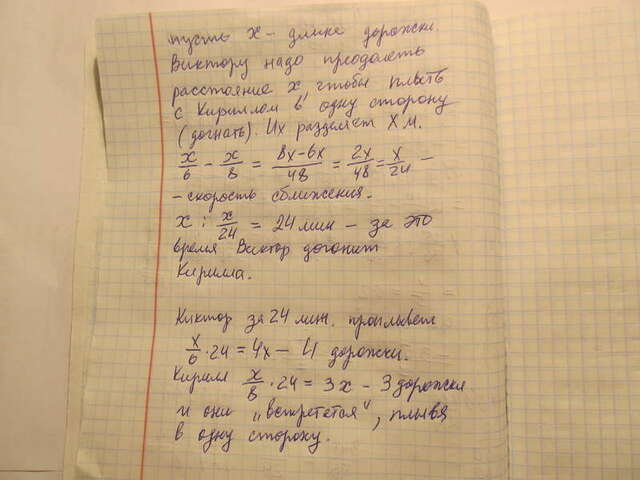 пусть x - длина дорожки.
Виктору надо преодолеть
расстояние x, чтобы плыть
с Кириллом в одну сторону
(догнать). Их разделяет X м.
x/6 - x/8 = (8x-6x)/48 = 2x/48 = x/24 -
- скорость сближения.
x : x/24 = 24 мин - за это
время Виктор догонит
Кирилла.
Виктор за 24 мин. проплывет
x/6 · 24 = 4x - 4 дорожки.
Кирилл x/8 · 24 = 3x - 3 дорожки
и они „встретятся", плывя
в одну сторону.